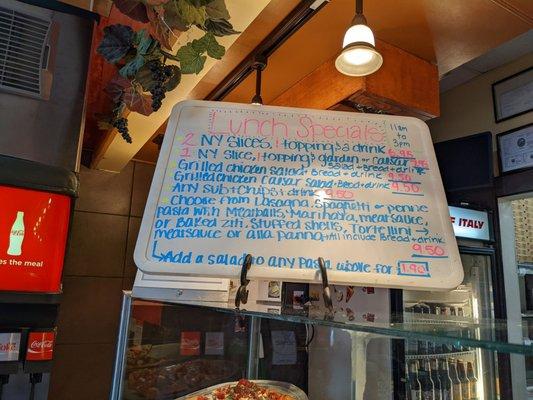 Lunch Specials
11am
to
3pm
2 NY SLICES, 1 topping & drink 6.95
1 NY Slice, 1 topping & garden or Caesar
Grilled chicken salad + Bread + drink 9.50
Grilled chicken Caesar salad + Bread + drink 9.50
Any sub + chips + drink 9.50
Choose from Lasagna, spaghetti or penne
pasta with Meatballs, Marinara, meatsauce,
or Baked ziti, Stuffed shells, Tortellini →
meatsauce or alla panna, + All include Bread + drink
9.50
Add a salad to any pasta whole for 1.90
Choose
the meal
Coca-Cola
F ITALY